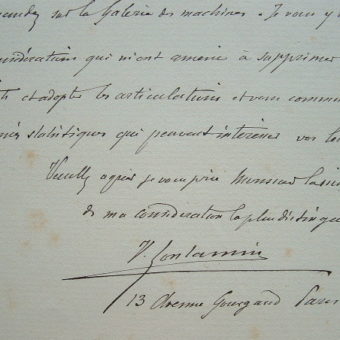 sur la Galerie des machines. Je vous y
considérations qui m'ont amené à supprimer
et adopter les articulations et vous commu
statistiques qui peuvent intéresser vos lec
Veuillez agréer je vous prie Monsieur l'assu
de ma considération la plus distingué
V. Contamin
13 Avenue Gourgaud Paris